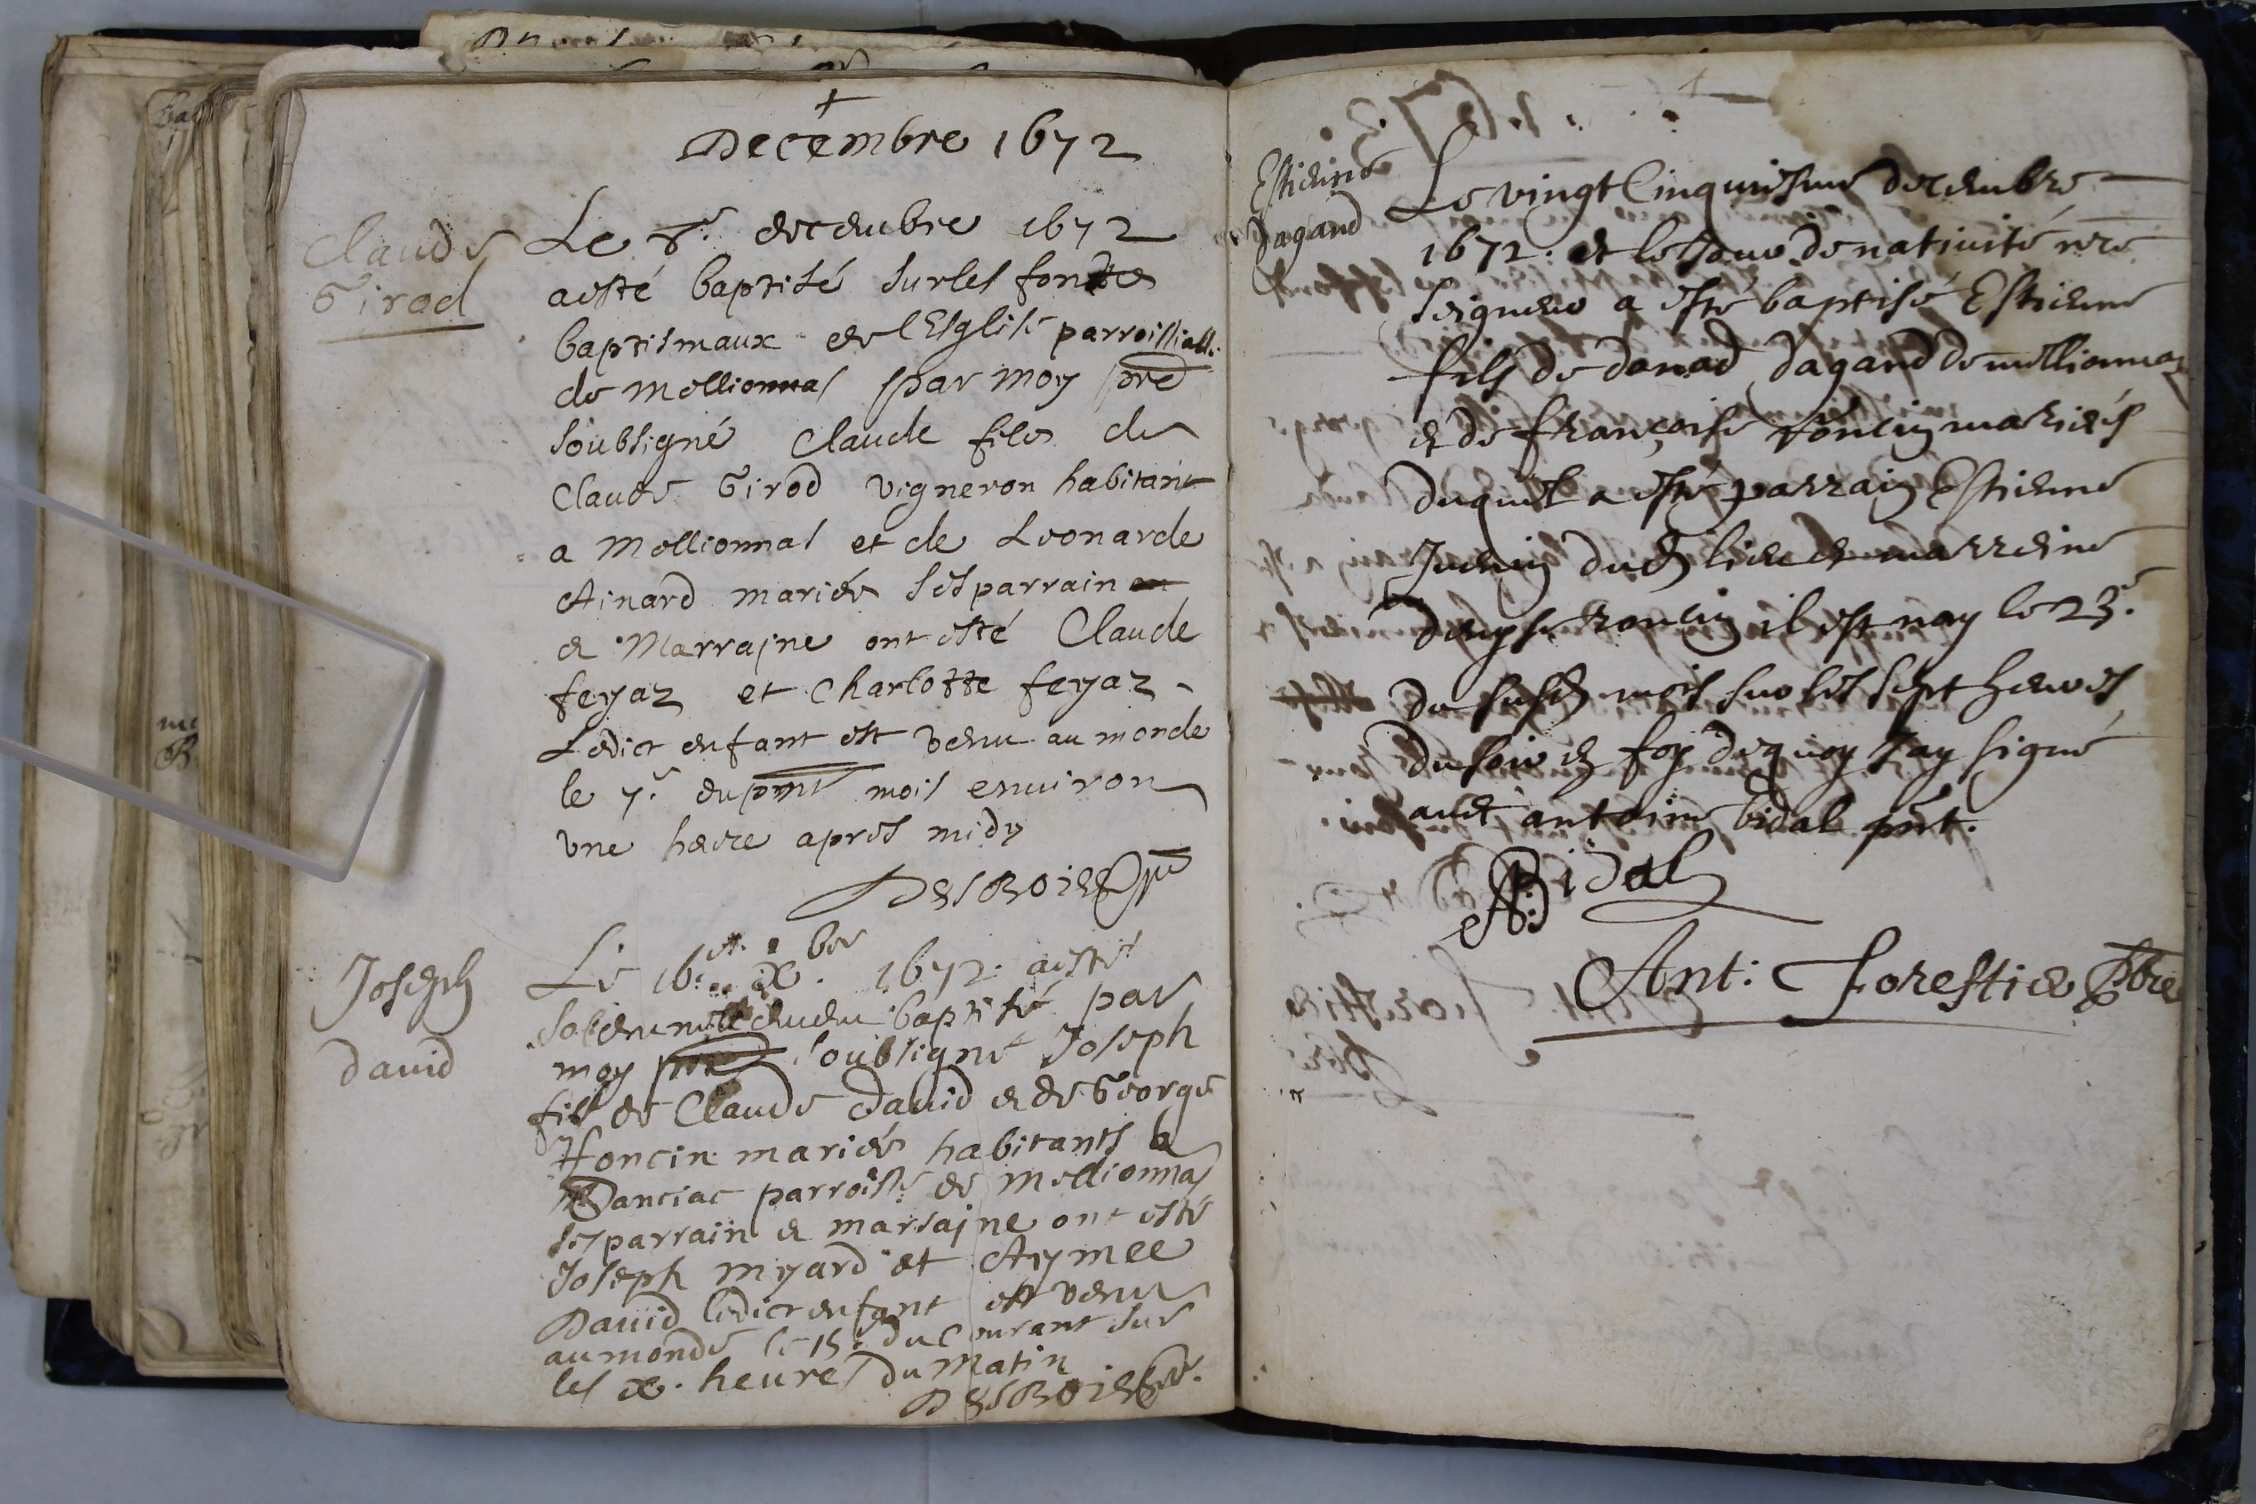 +
Decembre 1672
Claude
Girod
Le 8.e decembre 1672
a esté baptisé sur les fonds
baptismaux de l'Esglise parroissialle
de Mellionnas par moy pre
soubsigné Claude fils de
Claude Girod vigneron habitant
a Mellionnas et de Leonarde
Ainard mariés ses parrain
et Marrajne ont esté Claude
feyaz et Charlotte feyaz
Ledict enfant est venu au monde
le 7.e du pnt mois environ
vne heure apres midy
Desboies pre
Joseph
david
Le 16.e xbre 1672. a esté
solemnellement baptisé par
moy soubsigné Joseph
fils de Claude david et de George
honcin mariés habitants a
Sanciac parroisse de Mellionnas
ses parrain et marrajne ont esté
Joseph myard et Aymee
David ledict enfant est venu
au monde le 15.e du Courant sur
les x. heures du Matin
Desboies pre.
Estienne
Dagand
Le vingt Cinquiesme decembre
1672. et le Jour de nativité nre
seigneur a esté baptisé Estienne
fils de donad dagand de mellionnaz
et de françoise roncin mariés
duquel a esté parrain Estienne
Juenin dud lieu et marreine
denyse roncin il est nay le 23.e
du susd mois sur les sept heures
du soir en foy dequoy Jay signé
avec antoine bidal pnt.
A Bidal
Ant: Forestier Pbre